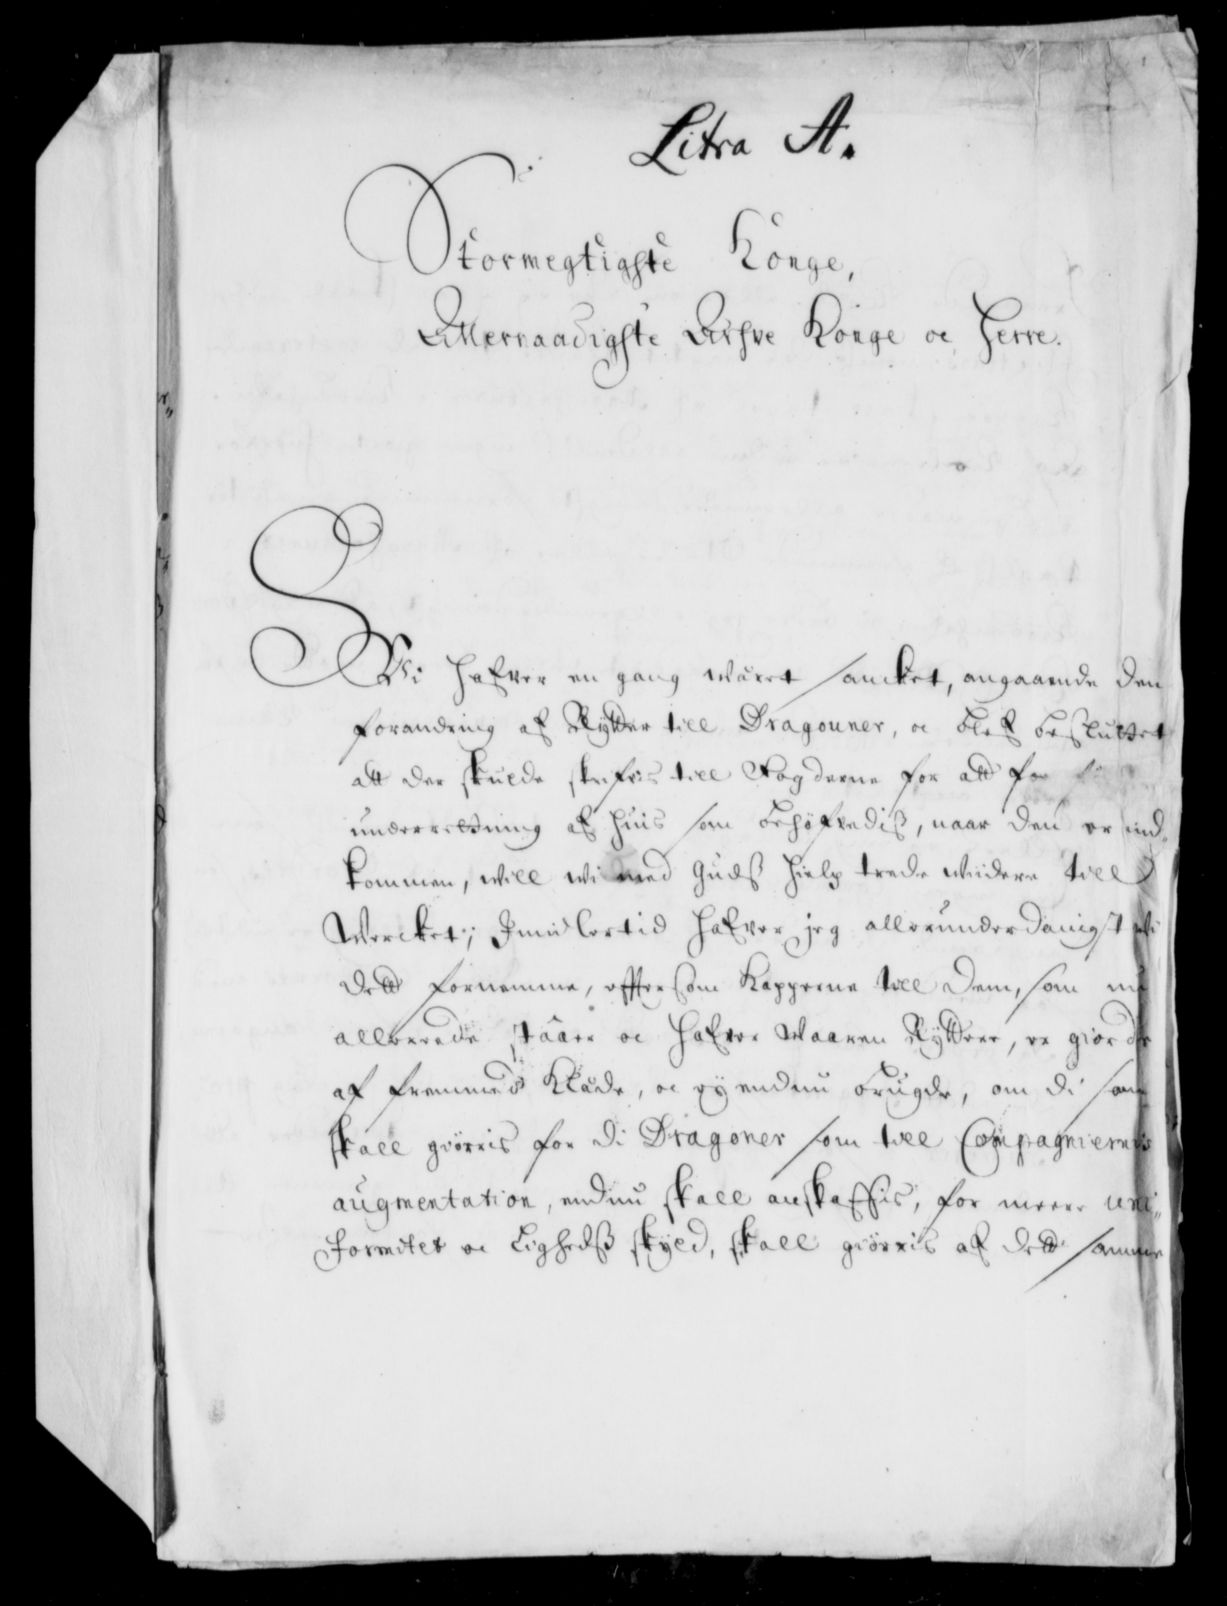 Litra A.
Stormegtigste Konge,
Allernaadigste Arfve Konge oc Herre.
Wi hafver en gang wäret samlet, angaaende den
forandring af Rytter till Dragouner, oc blef besluttet
att der skulde skrifvis till Fogderne for att faa
underretning af huis som behøfvedis, naar den er ind-
kommen, will wi med Guds hielp trede widere till
Wercket; Imidlertid hafver jeg allerunderdanigst
dett fornemme, efftersom Kapperne till dem, som nu
allerrede staar oc hafver waaren Ryttere, er giorde
af fremmed Klæde, oc ey endnu brugde, om di som
skall giørris for di Dragoner som till Compagniernis
augmentation, endnu skall anskaffis, for meere uni-
formitet oc Ligheds skyld, skall giørris af dett samme